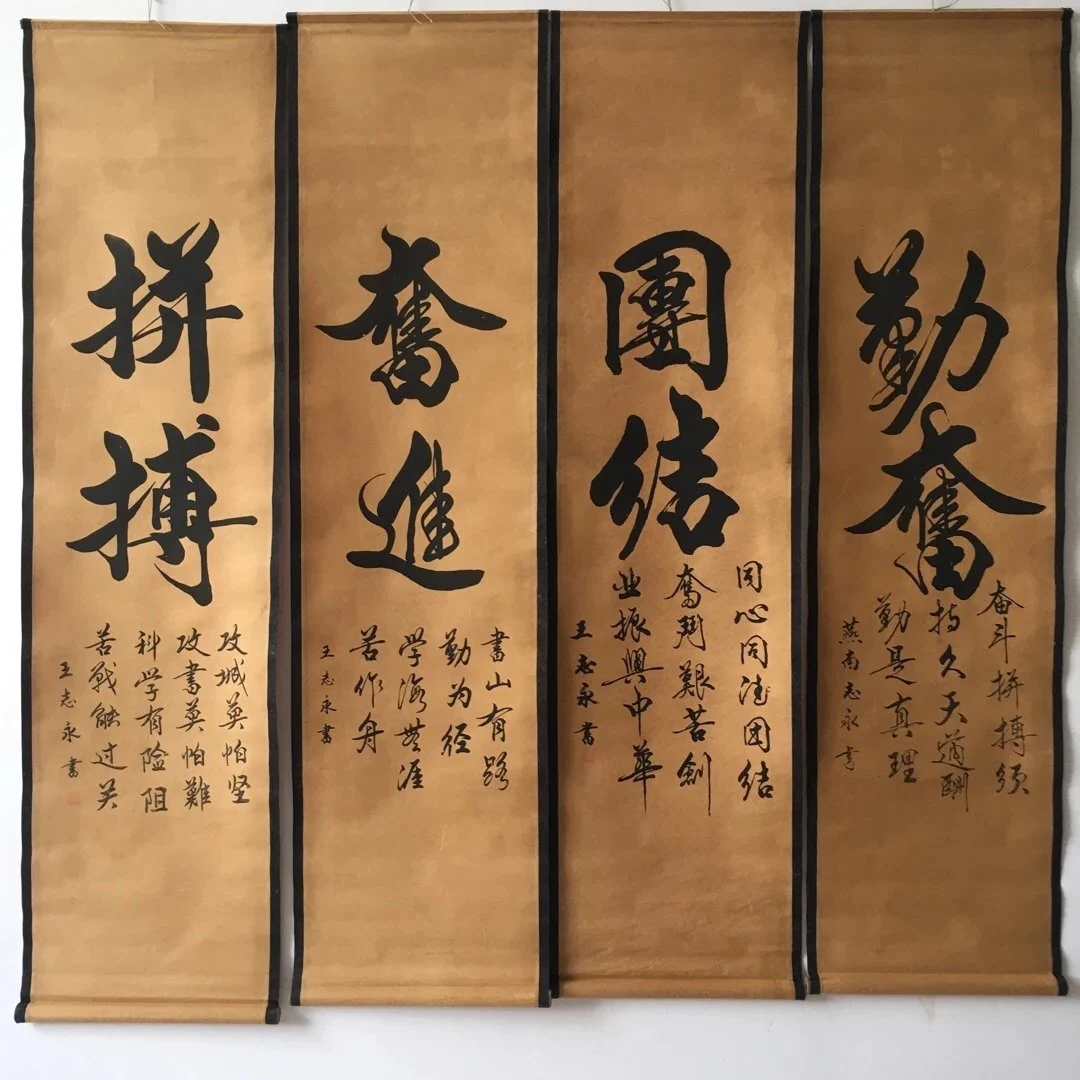 勤奮
奋斗拼搏须
持久天道酬
勤是真理
燕南志永书
團结
同心同德团结
奮鬥艱苦創
业振興中華
王志永書
奮進
書山有路
勤为径
学海無涯
苦作舟
王志永書
拼搏
攻城莫怕坚
攻書莫怕難
科学有险阻
苦戰能过关
王志永書